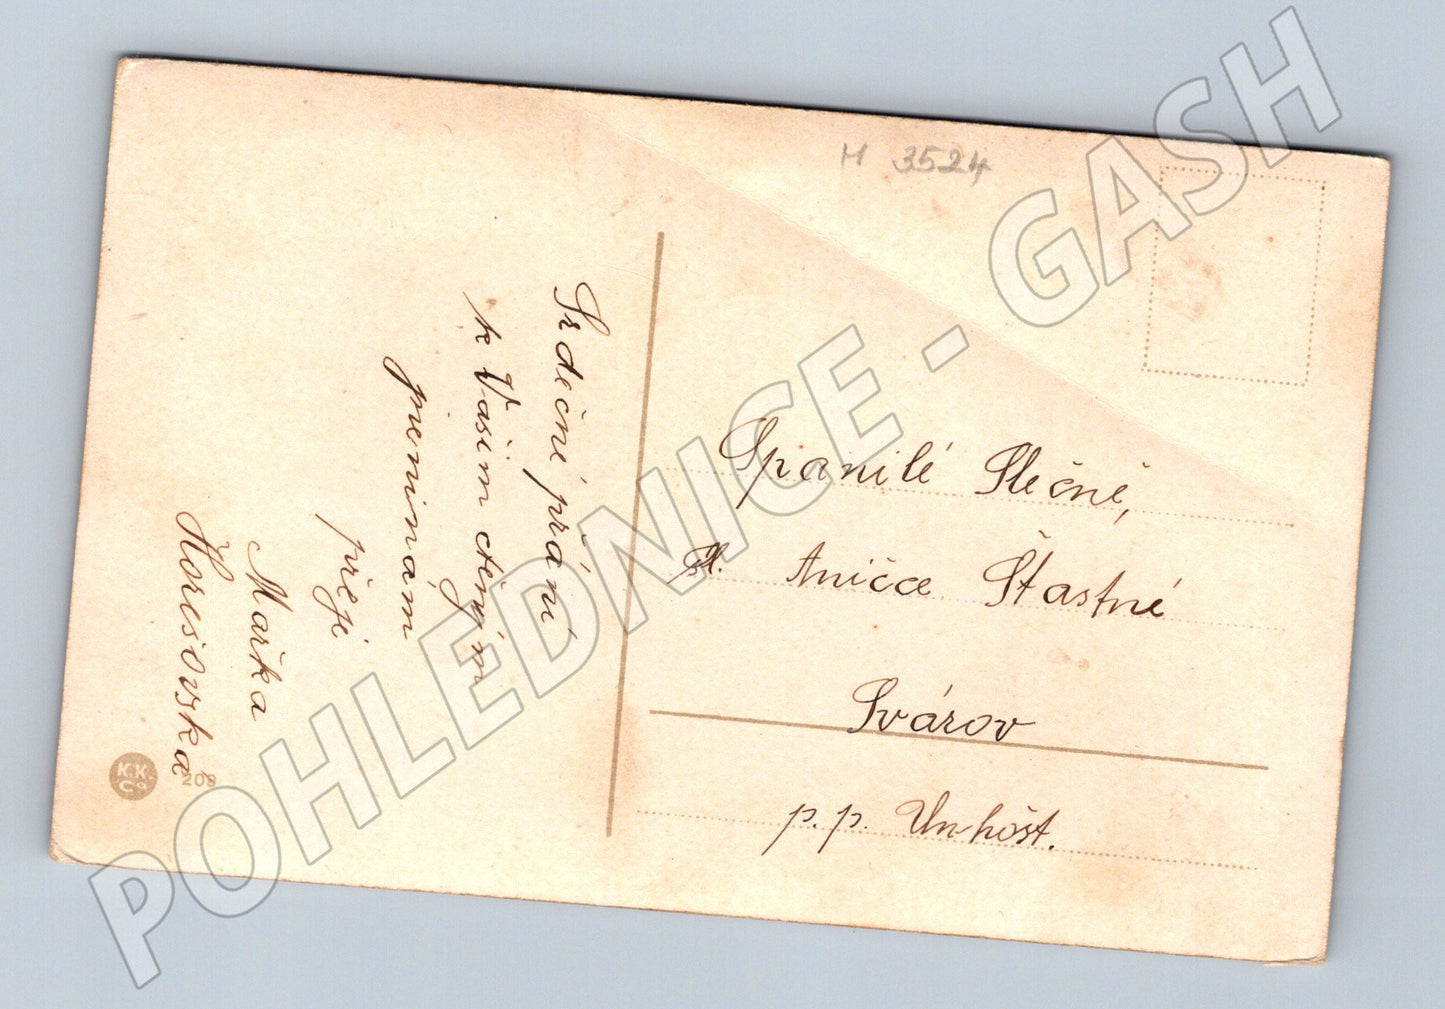 H 3524
Srdečné přání
k Vašim ctěným
jmeninám
přeje
Mařka
Horešovská
Spanilé Slečně,
sl. Aničce Šťastné
Svárov
p. p. Unhošt.
K.K.
Co
209
POHLEDNICE - GASH